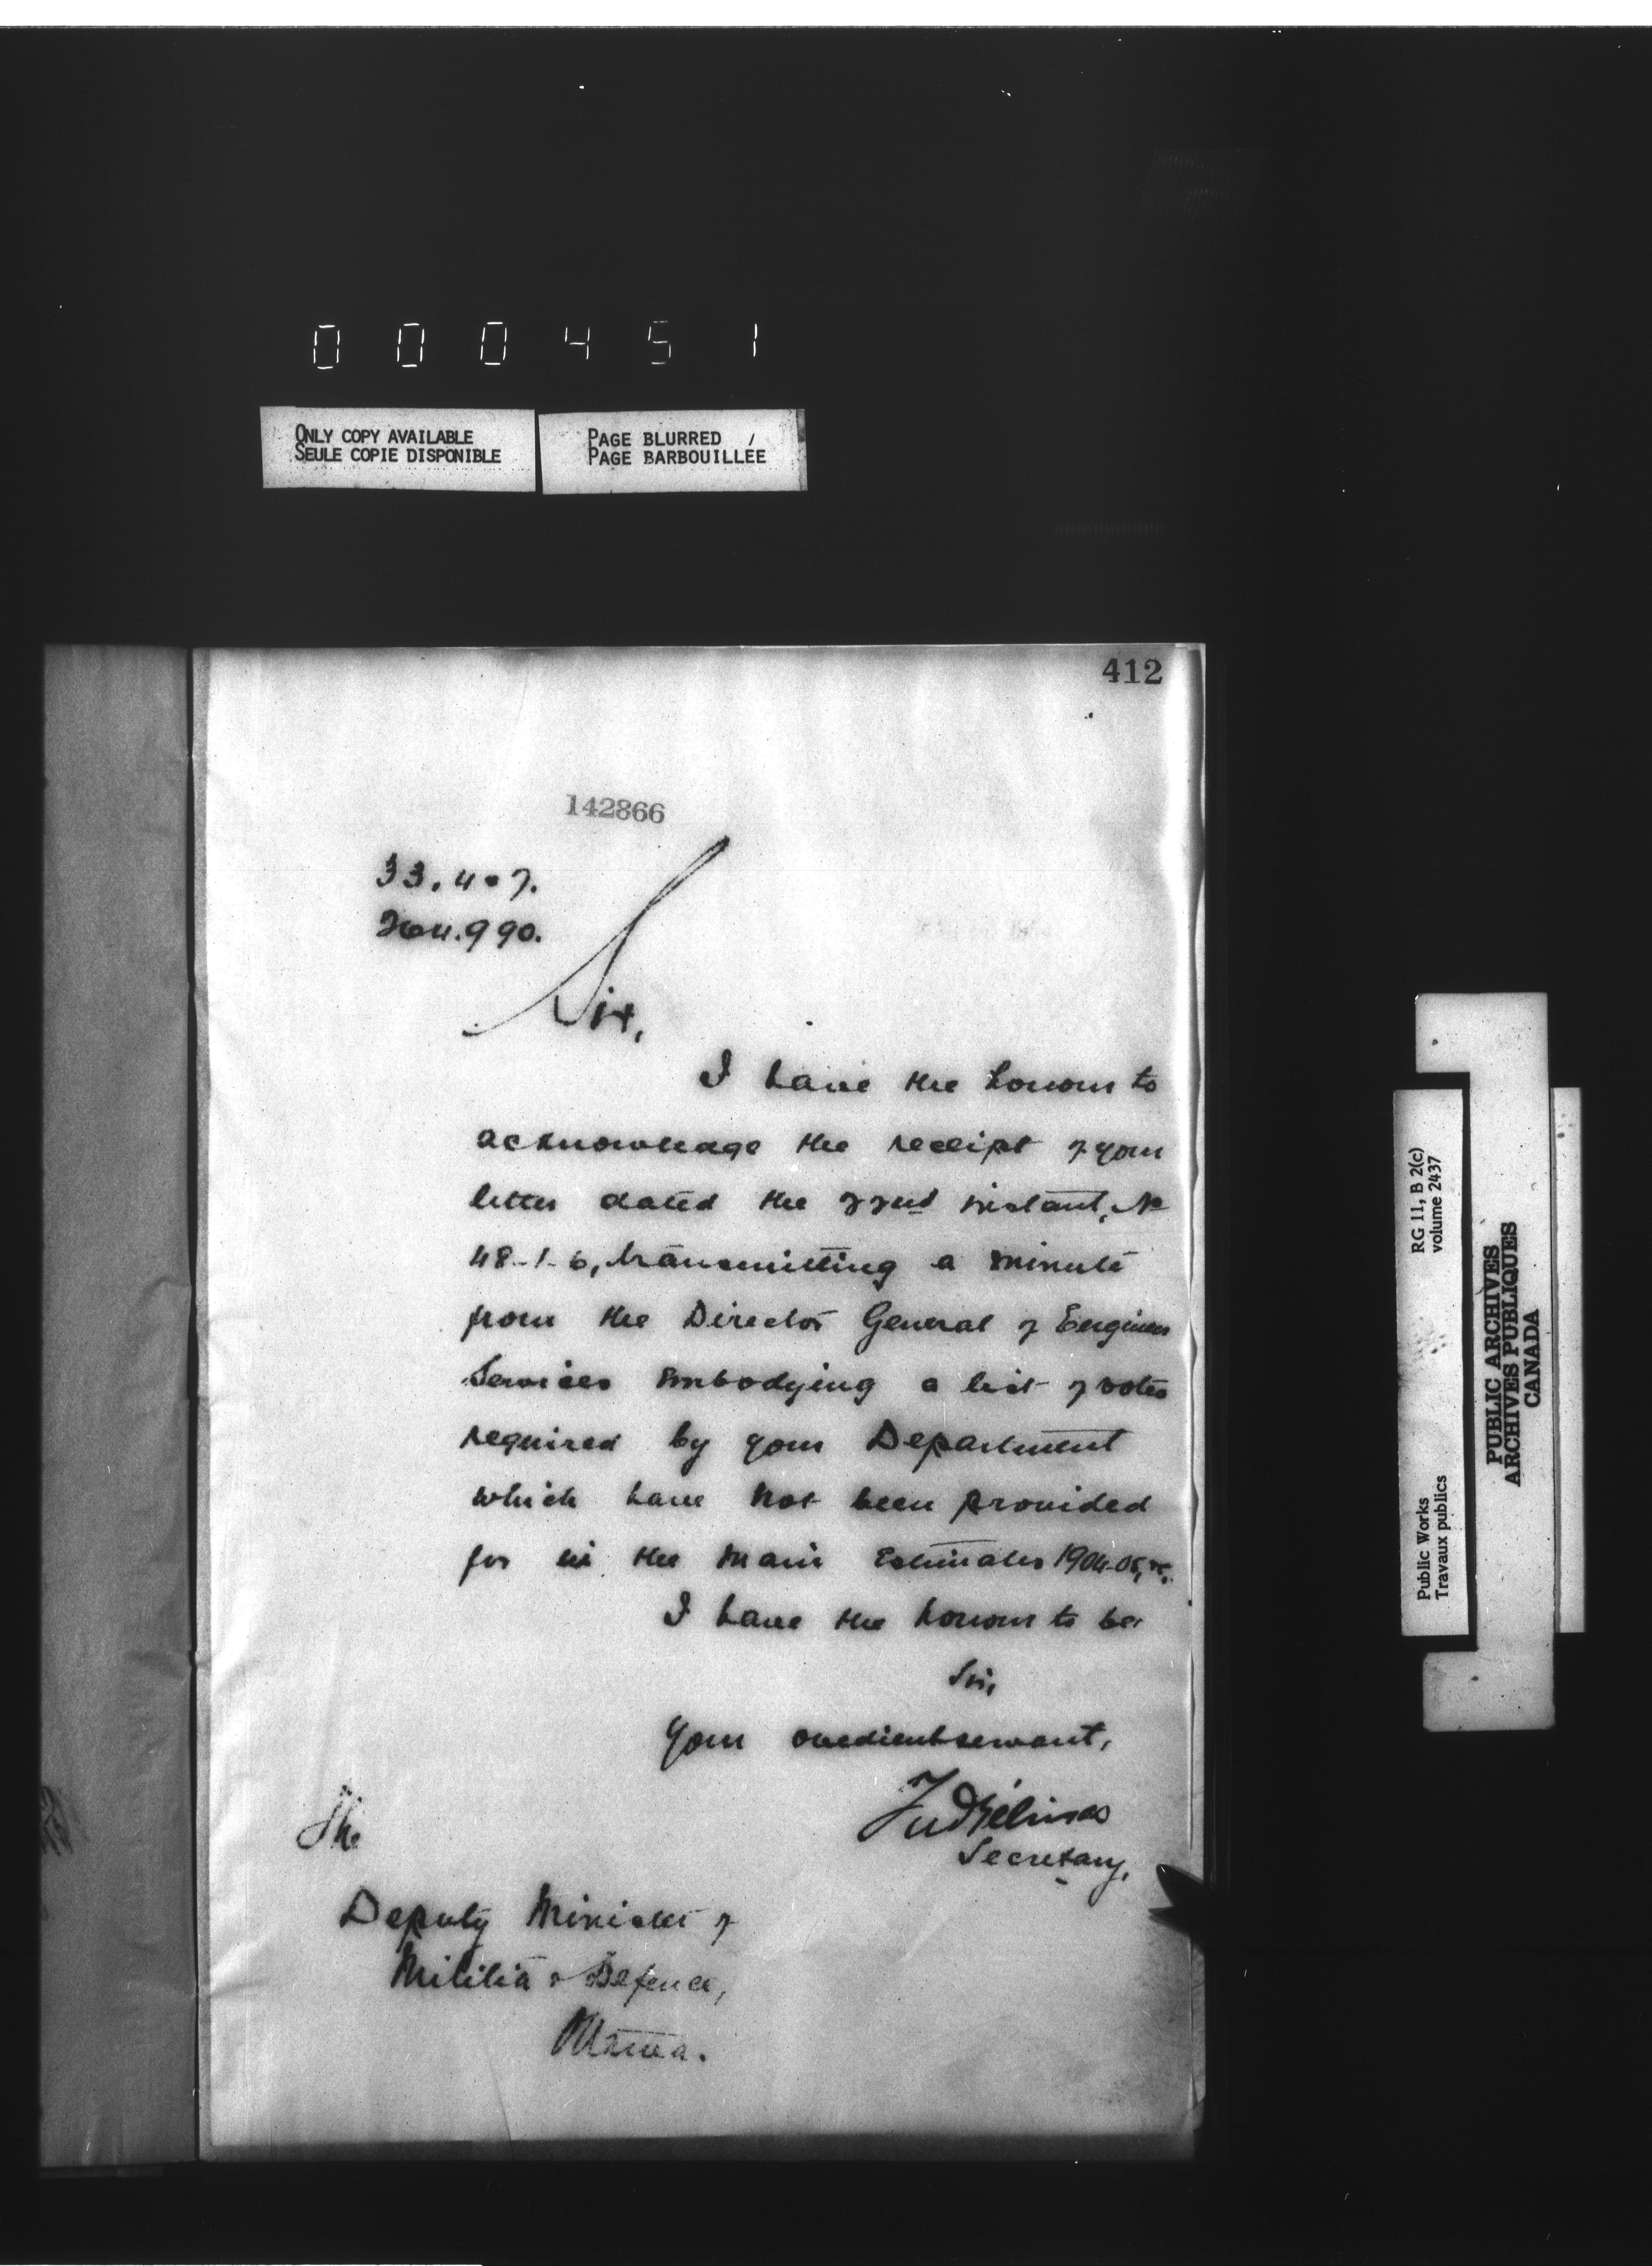 0 0 0 4 5 1
ONLY COPY AVAILABLE
SEULE COPIE DISPONIBLE
PAGE BLURRED /
PAGE BARBOUILLÉE
412
142866
33.407.
264.990.
Sir,
I have the honour to
acknowledge the receipt of your
letter dated the 22nd instant, No
48-1-6, transmitting a minute
from the Director General of Engineer
Services embodying a list of votes
required by your Department
which have not been provided
for in the Main Estimates 1904-05, &c.
I have the honour to be
Sir,
Your obedient servant,
Fred Gélinas
Secretary,
The
Deputy Minister of
Militia & Defence,
Ottawa.
RG 11, B 2(c)
volume 2437
Public Works
Travaux publics
PUBLIC ARCHIVES
ARCHIVES PUBLIQUES
CANADA